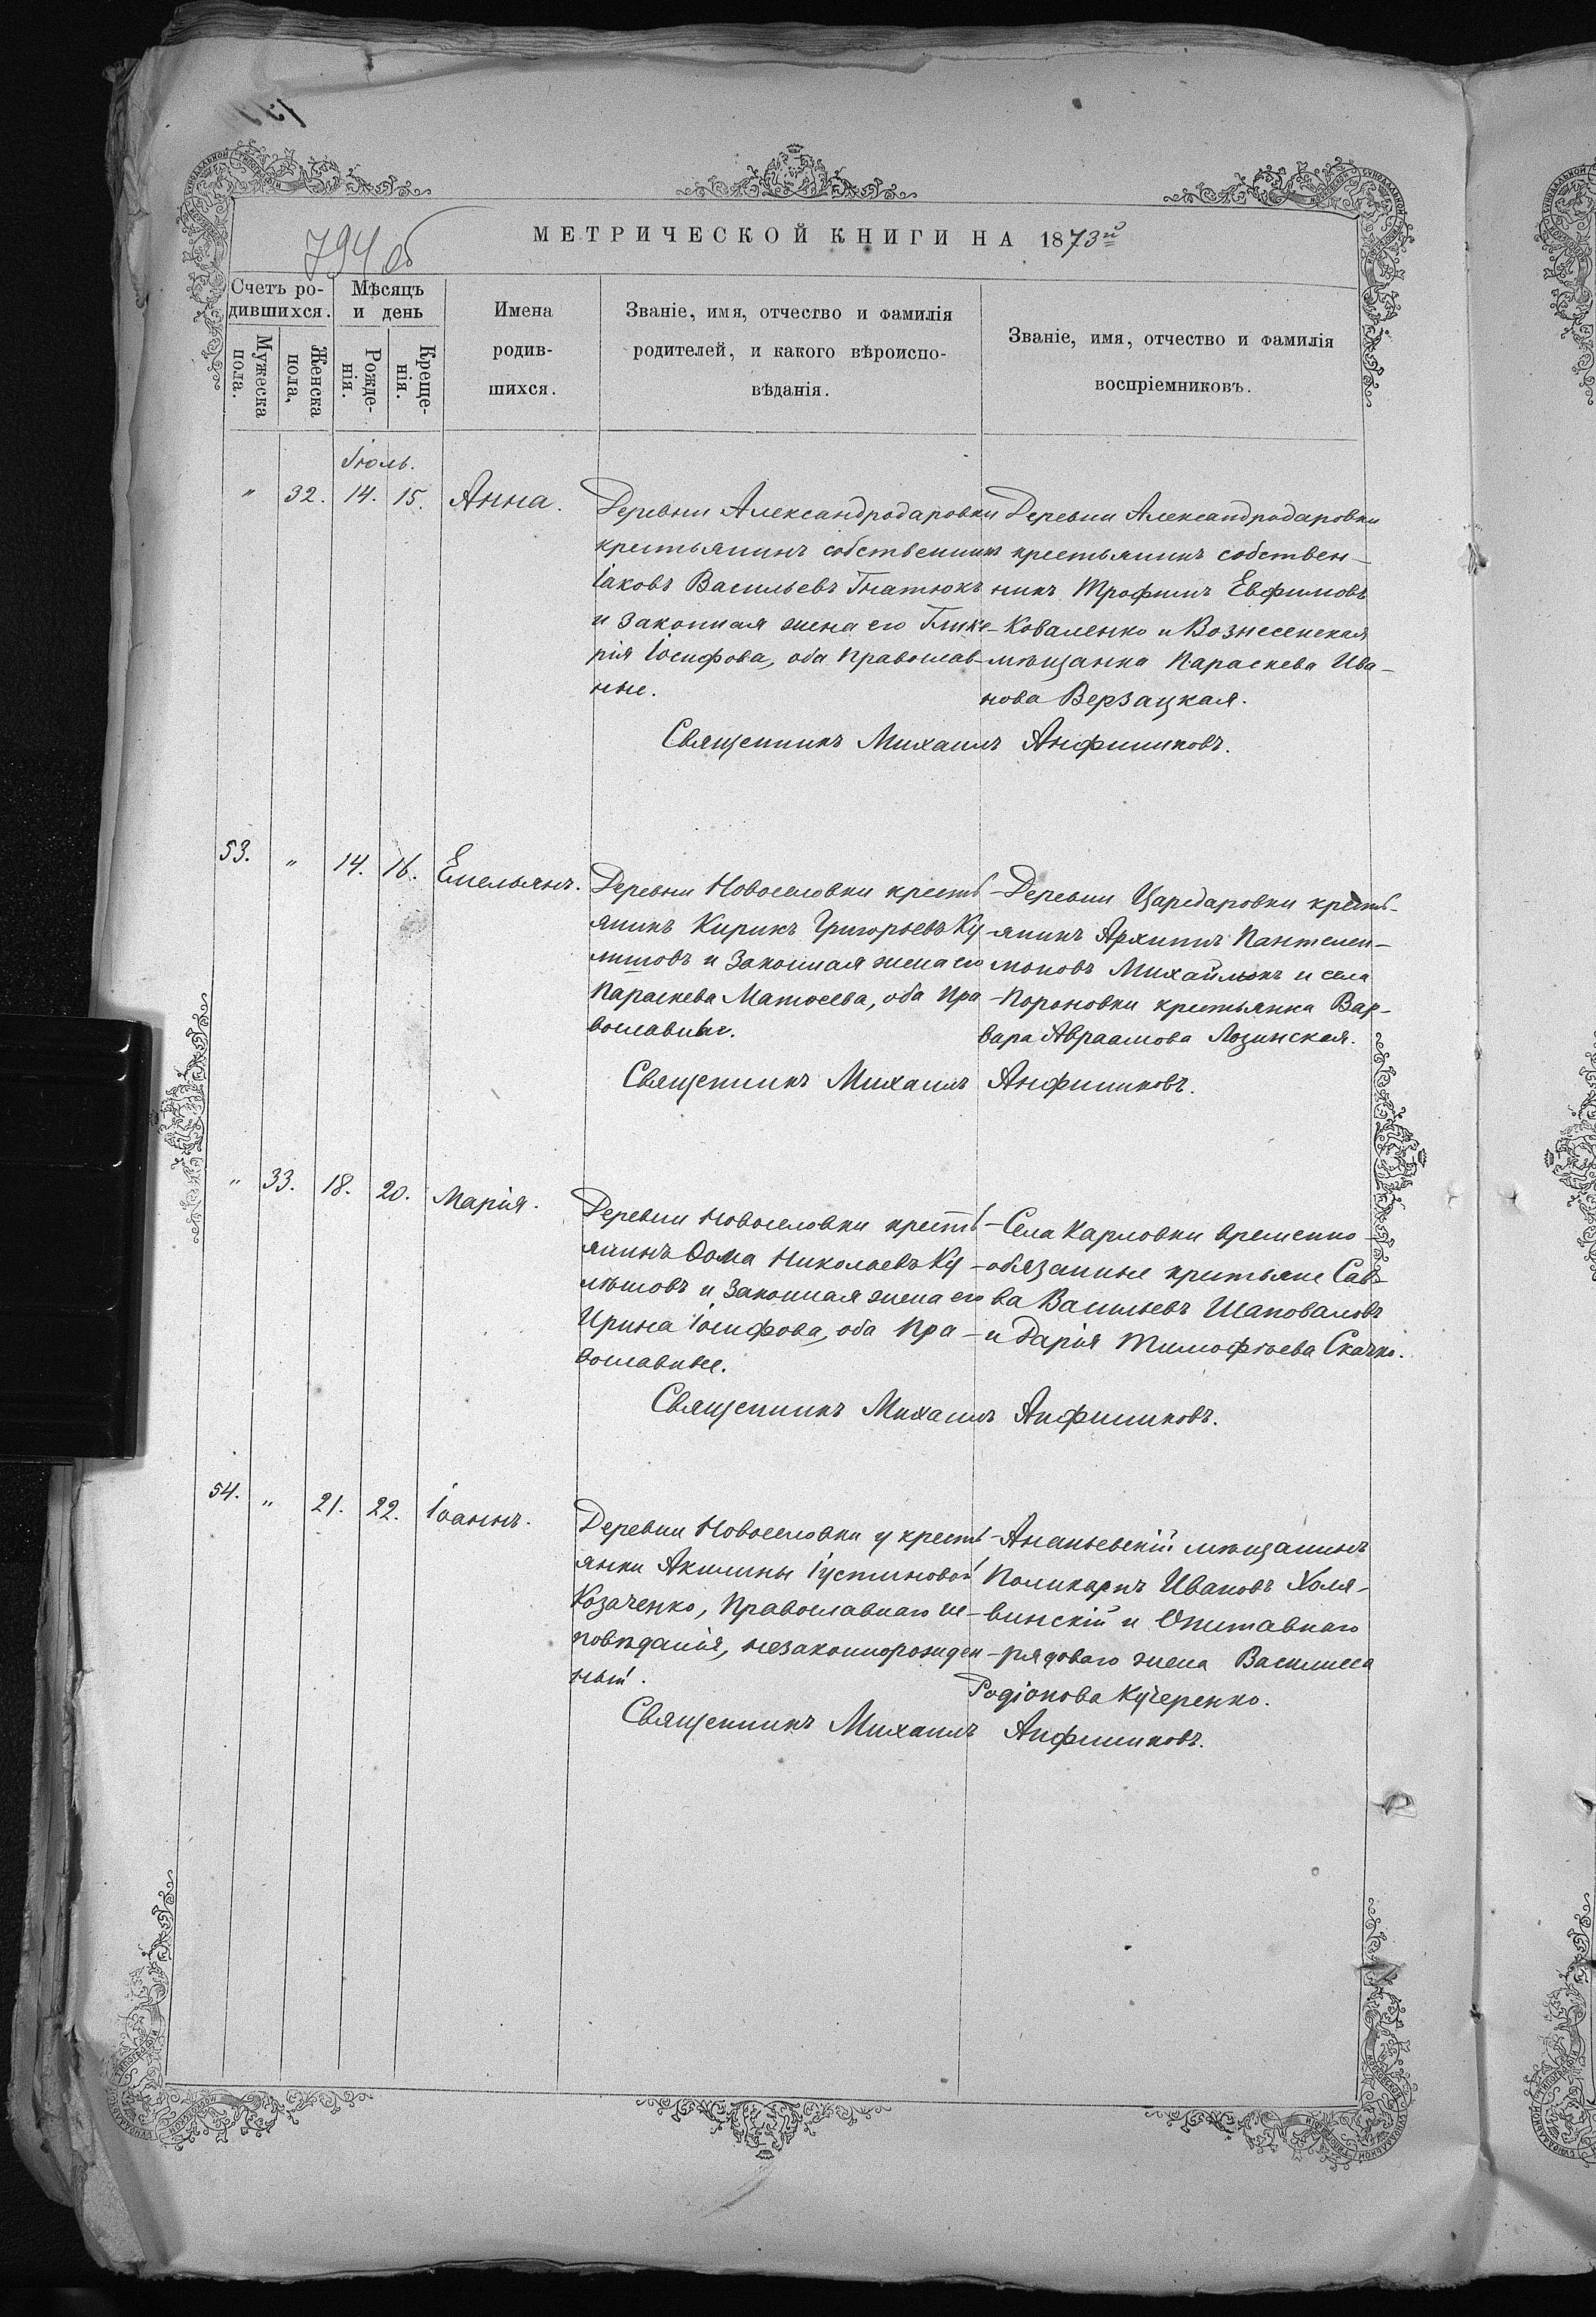 794 об
МЕТРИЧЕСКОЙ КНИГИ НА 1873й
Счетъ ро-
дившихся.
Мужеска пола.
Женска пола,
Мѣсяцъ
и день
Рожде-
нія.
Креще-
нія.
Имена
родив-
шихся.
Званіе, имя, отчество и фамилія
родителей, и какого вѣроиспо-
вѣданія.
Званіе, имя, отчество и фамилія
воспріемниковъ.
Іюль.
" 32. 14. 15. Анна.
Деревни Александродаровки
крестьянинъ собственникъ
Іаковъ Васильевъ Гнатюкъ
и законная жена его Глике-
рія Іосифова, оба Православ-
ные.
Деревни Александродаровки
крестьянинъ собствен-
никъ Трофимъ Евфимовъ
Коваленко и Вознесенская
мѣщанка Параскева Ива-
нова Верзацкая.
Священникъ Михаилъ Анфиниковъ.
53. " 14. 16. Емельянъ.
Деревни Новоселовки кресть-
янинъ Кирикъ Григорьевъ Ку-
лишовъ и законная жена его
Параскева Матѳеева, оба Пра-
вославные.
Деревни Царедаровки кресть-
янинъ Архипъ Пантелеи-
моновъ Михайлюкъ и села
Пороновки крестьянка Вар-
вара Авраамова Лозинская.
Священникъ Михаилъ Анфиниковъ.
" 33. 18. 20. Марія.
Деревни Новоселовки кресть-
янинъ Ѳома Николаевъ Ку-
лѣшовъ и законная жена его
Ирина Іосифова, оба Пра-
вославные.
Села Карловки временно-
обязанные крестьяне Сав-
ва Васильевъ Шаповаловъ
и Дарія Тимофѣева Скачко.
Священникъ Михаилъ Анфиниковъ.
54. " 21. 22. Іоаннъ.
Деревни Новоселовки у кресть-
янки Акилины Іустиновой
Козаченко, Православнаго ис-
повѣданія, незаконнорожден-
ный.
Ананьевскій мѣщанинъ
Поликарпъ Ивановъ Холя-
винскій и Отставнаго
рядоваго жена Василисса
Родіонова Кучеренко.
Священникъ Михаилъ Анфиниковъ.